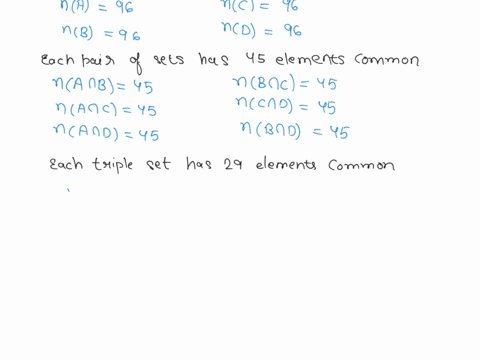 n(A) = 96 n(C) = 96
n(B) = 96 n(D) = 96
Each pair of sets has 45 elements common
n(A∩B) = 45 n(B∩C) = 45
n(A∩C) = 45 n(C∩D) = 45
n(A∩D) = 45 n(B∩D) = 45
Each triple set has 29 elements common